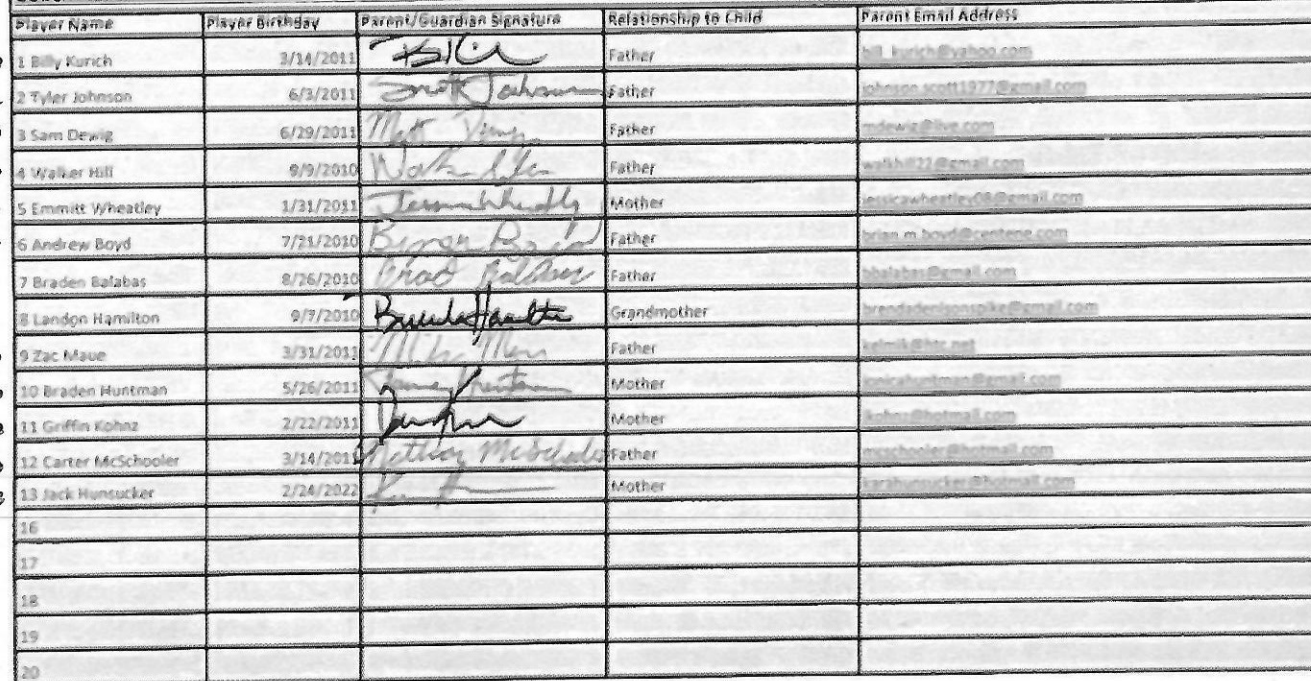 Player Name Player Birthday Parent/Guardian Signature Relationship to Child Parent Email Address
1 Billy Kurich 3/14/2011 Father bill_kurich@yahoo.com
2 Tyler Johnson 6/3/2011 Scott Johnson Father johnson.scott1977@gmail.com
3 Sam Dewig 6/29/2011 Matt Father mdewig@live.com
4 Walker Hill 9/9/2010 Father walkhill22@gmail.com
5 Emmitt Wheatley 1/31/2011 Jessica Wheatley Mother jessicawheatley08@gmail.com
6 Andrew Boyd 7/21/2010 Brian Boyd Father brian.m.boyd@centene.com
7 Braden Balabas 8/26/2010 Brad Balabas Father bbalabas@gmail.com
8 Landon Hamilton 9/7/2010 Brenda Hamilton Grandmother brendadenisonspike@gmail.com
9 Zac Maue 3/31/2011 Father kelmik@htc.net
10 Braden Huntman 5/26/2011 Mother jonicahuntman@gmail.com
11 Griffin Kohnz 2/22/2011 Mother jkohnz@hotmail.com
12 Carter McSchooler 3/14/2011 McSchooler Father mcschooler@hotmail.com
13 Jack Hunsucker 2/24/2022 Mother karahunsucker@hotmail.com
16
17
18
19
20